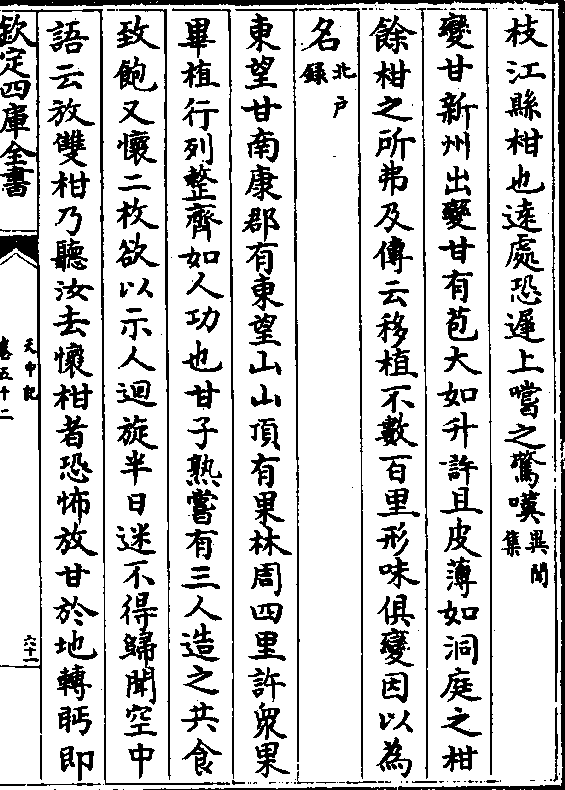 枝江縣柑也遠處恐遲上嚐之驚嘆異聞集
變甘新州出變甘有苞大如升許且皮薄如洞庭之柑
餘柑之所弗及傳云移植不數百里形味俱變因以為
名北户錄
東望甘南康郡有東望山山頂有果林周四里許衆果
畢植行列整齊如人功也甘子熟嘗有三人造之共食
致飽又懷二枚欲以示人迴旋半日迷不得歸聞空中
語云放雙柑乃聽汝去懷柑者恐怖放甘於地轉眄即
欽定四庫全書
天中記
卷五十二
六十二